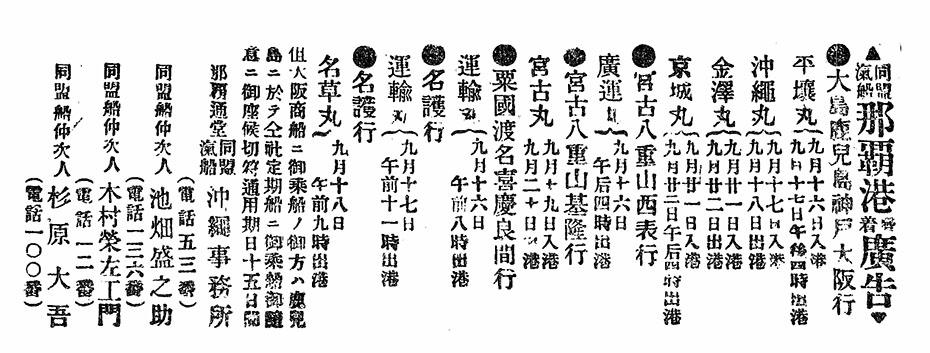 ▲同盟汽船那覇港發着廣告▼
●大島鹿兒島神戸大阪行
平壤丸 九月十六日入港 九月十七日午後四時出港
沖繩丸 九月十七日入港 九月十八日出港
金澤丸 九月廿一日入港 九月廿二日出港
京城丸 九月廿一日入港 九月廿二日午后四時出港
●宮古八重山西表行
廣運丸 九月十六日 午后四時出港
●宮古八重山基隆行
宮古丸 九月十九日入港 九月二十日出港
●粟國渡名喜慶良間行
運輸丸 九月十六日 午前八時出港
●名護行
運輸丸 九月十七日 午前十一時出港
●名護行
名草丸 九月十八日 午前九時出港
但大阪商船ニ御乘船ノ御方ハ鹿兒
島ニ於テ仝社定期船ニ御乘船御隨
意ニ御座候切符通用期日十五日間
那覇通堂 同盟汽船 沖繩事務所
(電話五三番)
同盟船仲次人 池畑盛之助
(電話一三六番)
同盟船仲次人 木村榮左工門
(電話一二番)
同盟船仲次人 杉原大吾
(電話一〇〇番)